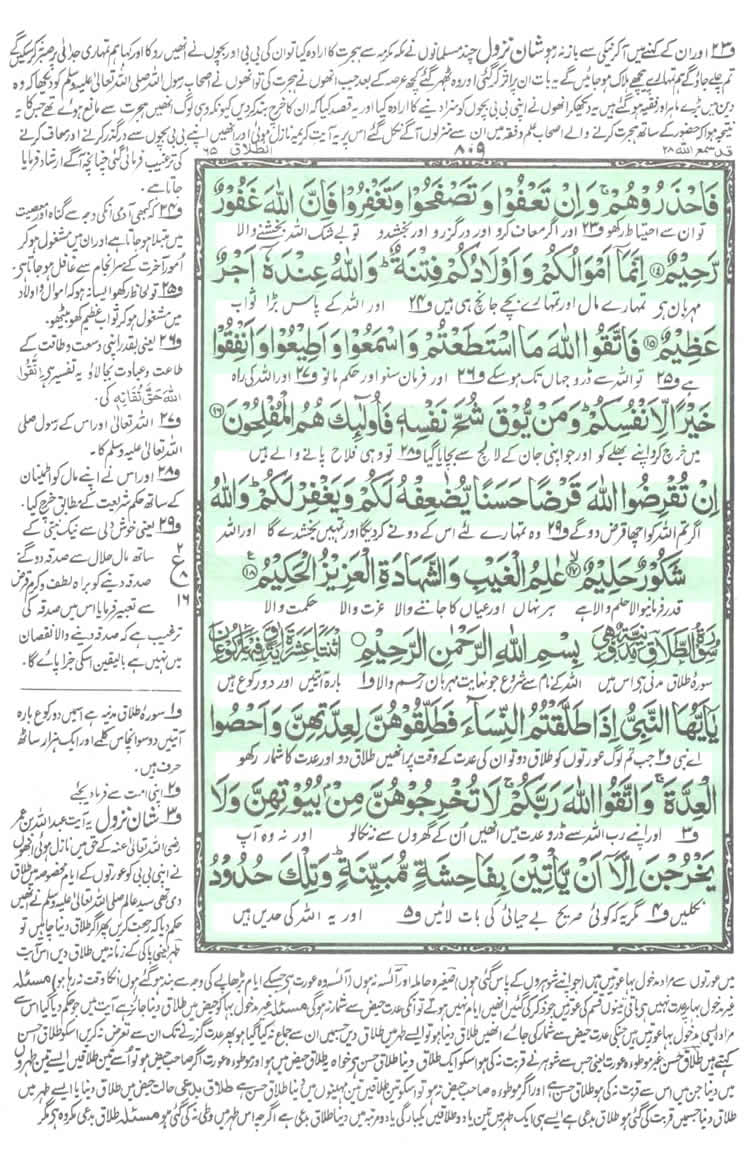 ف۲۳ اور ان کے کہنے میں آکر نیکی سے باز نہ ہو شان نزول چند مسلمانوں نے مکہ مکرمہ سے ہجرت کا ارادہ کیا تو ان کی بی بی اور بچوں نے انھیں روکا اور کہا ہم تمہاری جدائی پر صبر نہ کرسکیں گے
تم چلے جاؤ گے ہم تمہارے پیچھے ہلاک ہوجائیں گے یہ بات ان پر اثر کر گئی اور وہ ٹھہر گئے کچھ عرصہ کے بعد جب انھوں نے ہجرت کی تو انھوں نے اصحاب رسول اللہ صلی اللہ تعالیٰ علیہ وسلم کو دیکھا کہ وہ
دین میں بڑے ماہر اور فقیہ ہوگئے ہیں یہ دیکھ کر انھوں نے اپنی بی بی بچوں کو سزا دینے کا ارادہ کیا اور یہ قصد کیا کہ ان کا خرچ بند کردیں کیونکہ وہی لوگ انھیں ہجرت سے مانع ہوئے تھے جس کا یہ
نتیجہ ہوا کہ حضور کے ساتھ ہجرت کرنے والے اصحاب علم و فقہ میں ان سے منزلوں آگے نکل گئے اس پر یہ آیت کریمہ نازل ہوئی اور انھیں اپنے بی بی بچوں سے درگزر کرنے اور معاف کرنے
کی ترغیب فرمائی گئی چنانچہ آگے ارشاد فرمایا
جاتا ہے۔
قد سمع اللہ ۲۸ ۸۰۹ الطلاق ۶۵
فَاحْذَرُوْهُمْ ۚ وَاِنْ تَعْفُوْا وَتَصْفَحُوْا وَتَغْفِرُوْا فَاِنَّ اللّٰهَ غَفُوْرٌ
تو ان سے احتیاط رکھو ف۲۳ اور اگر معاف کرو اور درگزرو اور بخشدو تو بے شک اللہ بخشنے والا
رَّحِيْمٌ ۝۱۴ اِنَّمَاۤ اَمْوَالُكُمْ وَاَوْلَادُكُمْ فِتْنَةٌ ؕ وَاللّٰهُ عِنْدَهٗۤ اَجْرٌ
مہربان ہی تمہارے مال اور تمہارے بچے جانچ ہی ہیں ف۲۴ اور اللہ کے پاس بڑا ثواب
عَظِيْمٌ ۝۱۵ فَاتَّقُوا اللّٰهَ مَا اسْتَطَعْتُمْ وَاسْمَعُوْا وَاَطِيْعُوْا وَاَنْفِقُوْا
ہے ف۲۵ تو اللہ سے ڈرو جہاں تک ہوسکے ف۲۶ اور فرمان سنو اور حکم مانو ف۲۷ اور اللہ کی راہ
خَيْرًا لِّاَنْفُسِكُمْ ؕ وَمَنْ يُّوْقَ شُحَّ نَفْسِهٖ فَاُولٰٓئِكَ هُمُ الْمُفْلِحُوْنَ ۝۱۶
میں خرچ کرو اپنے بھلے کو اور جو اپنی جان کے لالچ سے بچایا گیا ف۲۸ تو وہی فلاح پانے والے ہیں
اِنْ تُقْرِضُوا اللّٰهَ قَرْضًا حَسَنًا يُّضٰعِفْهُ لَكُمْ وَيَغْفِرْ لَكُمْ ؕ وَاللّٰهُ
اگر تم اللہ کو اچھا قرض دوگے ف۲۹ وہ تمہارے لئے اس کے دونے کردیگا اور تمہیں بخشدے گا اور اللہ
شَكُوْرٌ حَلِيْمٌ ۝۱۷ عٰلِمُ الْغَيْبِ وَالشَّهَادَةِ الْعَزِيْزُ الْحَكِيْمُ ۝۱۸
قدر فرمانیوالا حلم والا ہے ہر نہاں اور عیاں کا جاننے والا عزت والا حکمت والا
سورة الطلاق مدنیة وهي بِسْمِ اللّٰهِ الرَّحْمٰنِ الرَّحِيْمِ اثنتا عشرة اٰیة وفیها ركوعان
سورۂ طلاق مدنی ہی اس میں اللہ کے نام سے شروع جو نہایت مہربان رحم والا ف۱ بارہ آیتیں اور دو رکوع ہیں
يٰۤاَيُّهَا النَّبِيُّ اِذَا طَلَّقْتُمُ النِّسَآءَ فَطَلِّقُوْهُنَّ لِعِدَّتِهِنَّ وَاَحْصُوا
اے نبی ف۲ جب تم لوگ عورتوں کو طلاق دو تو ان کی عدت کے وقت پر انھیں طلاق دو اور عدت کا شمار رکھو
الْعِدَّةَ ۚ وَاتَّقُوا اللّٰهَ رَبَّكُمْ ۚ لَا تُخْرِجُوْهُنَّ مِنْۢ بُيُوْتِهِنَّ وَلَا
ف۳ اور اپنے رب اللہ سے ڈرو عدت میں انھیں اُن کے گھروں سے نہ نکالو اور نہ وہ آپ
يَخْرُجْنَ اِلَّاۤ اَنْ يَّاْتِيْنَ بِفَاحِشَةٍ مُّبَيِّنَةٍ ؕ وَتِلْكَ حُدُوْدُ
نکلیں ف۴ مگر یہ کہ کوئی صریح بے حیائی کی بات لائیں ف۵ اور یہ اللہ کی حدیں ہیں
ف۲۴ کہ کبھی آدمی انکی وجہ سے گناہ اور معصیت
میں مبتلا ہوجاتا ہے اور ان میں مشغول ہوکر
اُمور آخرت کے سرانجام سے غافل ہوجاتا ہی۔
ف۲۵ تو لحاظ رکھو ایسا نہ ہو کہ اموال و اولاد
میں مشغول ہوکر ثواب عظیم کھو بیٹھو۔
ف۲۶ یعنی بقدر اپنی وسعت و طاقت کے
طاعت و عبادت بجا لاؤ یہ تفسیر ہی اِتَّقُوا
اللّٰهَ حَقَّ تُقَاتِهٖ کی۔
ف۲۷ اللہ تعالیٰ اور اس کے رسول صلی
اللہ تعالیٰ علیہ وسلم کا۔
ف۲۸ اور اس نے اپنے مال کو اطمینان
کے ساتھ حکم شریعت کے مطابق خرچ کیا۔
ف۲۹ یعنی خوش دلی سے نیک نیتی کے
ساتھ مال حلال سے صدقہ دوگے
صدقہ دینے کو براہ لطف و کرم قرض
سے تعبیر فرمایا اس میں صدقہ کی
ترغیب ہے کہ صدقہ دینے والا نقصان
میں نہیں ہے بالیقین اسکی جزا پائے گا۔
۲
ع
۸
۱۶
ف۱ سورۂ طلاق مدنیہ ہے اسمیں دو رکوع بارہ
آیتیں دو سو انچاس کلمے اور ایک ہزار ساٹھ
حرف ہیں۔
ف۲ اپنی امت سے فرما دیجئے
ف۳ شان نزول یہ آیت عبداللہ بن عمر
رضی اللہ تعالیٰ عنہ کے حق میں نازل ہوئی انھوں
نے اپنی بی بی کو عورتوں کے ایام مخصوصہ میں طلاق
دی تھی سید عالم صلی اللہ تعالیٰ علیہ وسلم نے انھیں
حکم دیا کہ رجعت کریں پھر اگر طلاق دینا چاہیں تو
طہر یعنی پاکی کے زمانہ میں طلاق دیں اس آیت
میں عورتوں سے مراد مدخول بہا عورتیں ہیں (جو اپنے شوہروں کے پاس گئی ہوں) صغیرہ حاملہ اور آئسہ نہ ہوں (آئسہ وہ عورت ہی جسکے ایام بڑھاپے کی وجہ سے بند ہوگئے ہوں انکا وقت نہ رہا ہو) مسئلہ
غیر مدخول بہا پر عدت نہیں ہی باقی تینوں قسم کی عورتیں جو ذکر کی گئیں انھیں ایام نہیں ہوتے تو انکی عدت حیض سے شمار نہ ہوگی مسئلہ غیر مدخول بہا کو حیض میں طلاق دینا جائز ہے آیت میں جو حکم دیا گیا اس سے
مراد ایسی مدخول بہا عورتیں ہیں جنکی عدت حیض سے شمار کی جائے انھیں طلاق دینا ہو تو ایسے طہر میں طلاق دیں جسمیں ان سے جماع نہ کیا گیا ہو پھر عدت گزرنے تک ان سے تعرض نہ کریں اسکو طلاق احسن
کہتے ہیں طلاق حسن غیر موطوءہ عورت یعنی جس سے شوہر نے قربت نہ کی ہو اسکو ایک طلاق دینا طلاق حسن ہی خواہ یہ طلاق حیض میں ہو اور موطوءہ عورت اگر صاحب حیض ہو تو اُسے تین طلاقیں ایسے تین طہروں
میں دینا جن میں اس سے قربت نہ کی ہو طلاق حسن ہے اور اگر موطوءہ صاحب حیض نہ ہو تو اسکو تین طلاقیں تین مہینوں میں دینا طلاق حسن ہے طلاق بدعی حالت حیض میں طلاق دینا یا ایسے طہر میں
طلاق دینا جسمیں قربت کی گئی ہو طلاق بدعی ہے ایسے ہی ایک طہر میں تین یا دو طلاقیں یکبارگی یا دو مرتبہ میں دینا طلاق بدعی ہے اگرچہ اس طہر میں وطی نہ کی گئی ہو مسئلہ طلاق بدعی مکروہ ہی مگر